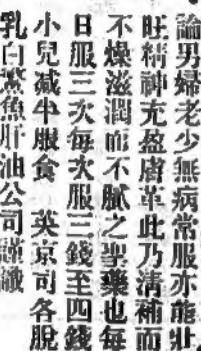 論男婦老少無病常服亦能壯
旺精神充盈膚革此乃清補而
不燥滋潤而不膩之聖藥也每
日服三次每次服三錢至四錢
小兒減半服食　英京司各脫
乳白鰵魚肝油公司謹識